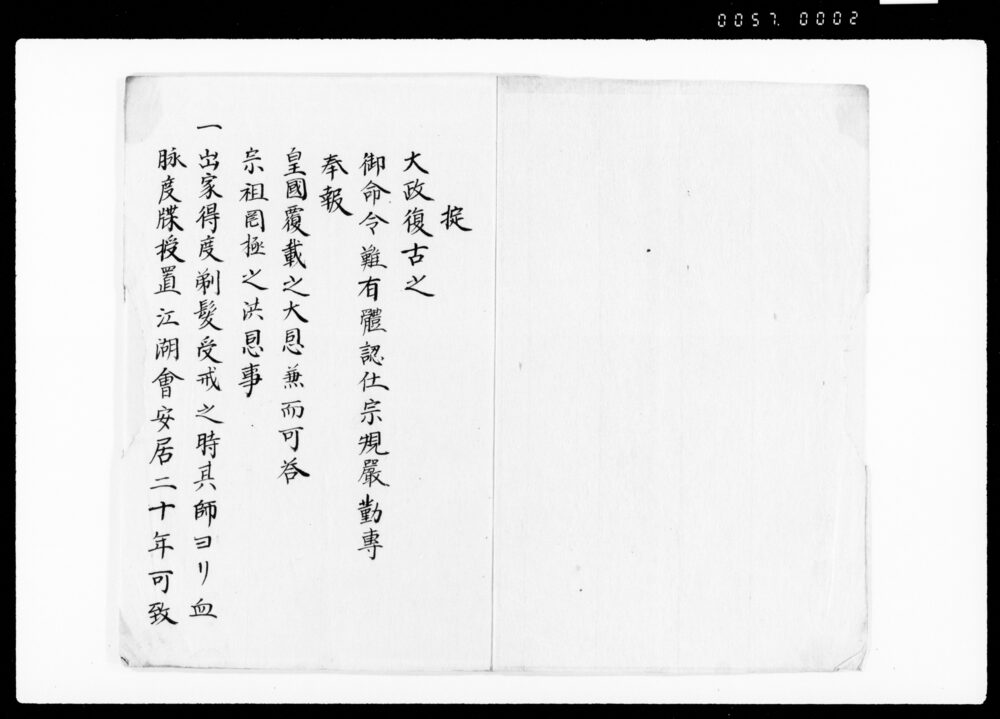 0057.0002
掟
大政復古之
御命令難有體認仕宗規嚴勤專
奉報
皇國覆載之大恩兼而可答
宗祖罔極之洪恩事
一出家得度剃髮受戒之時其師ヨリ血
脉度牒授置江湖會安居二十年可致